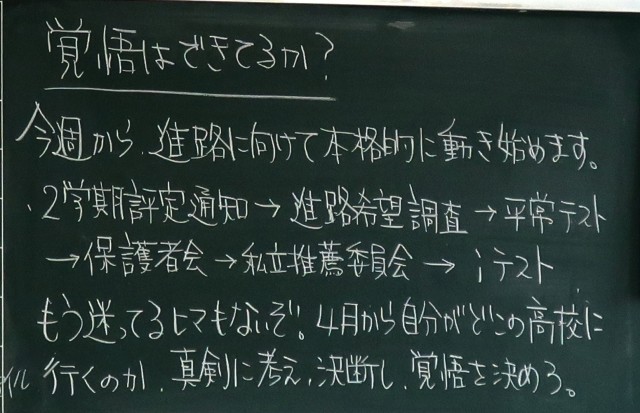 覚悟はできてるか?
今週から、進路に向けて本格的に動き始めます。
2学期評定通知→進路希望調査→平常テスト
→保護者会→私立推薦委員会→iテスト
もう迷ってるヒマもないぞ!4月から自分がどこの高校に
行くのか、真剣に考え、決断し、覚悟を決めろ。
イル